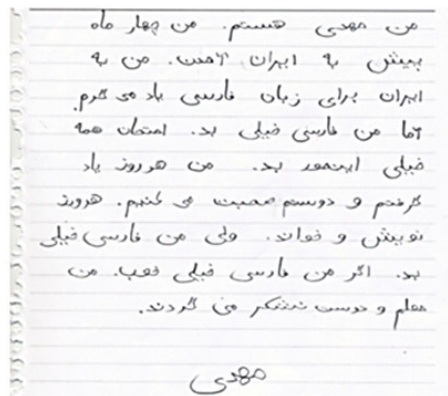 من مهدی هستم. من چهار ماه
پیش به ایران آمدن. من به
ایران برای زبان فارسی یاد می گرم.
اما من فارسی خیلی بد. امتحان همه
خیلی اینمور بد. من هرروز یاد
گرفتم و دوستم صحبت می کنیم. هروز
نویش و خواند. ولی من فارسی خیلی
بد. اگر من فارسی خیلی خوب. من
معلم و دوست تشکر می گردند.
مهدی